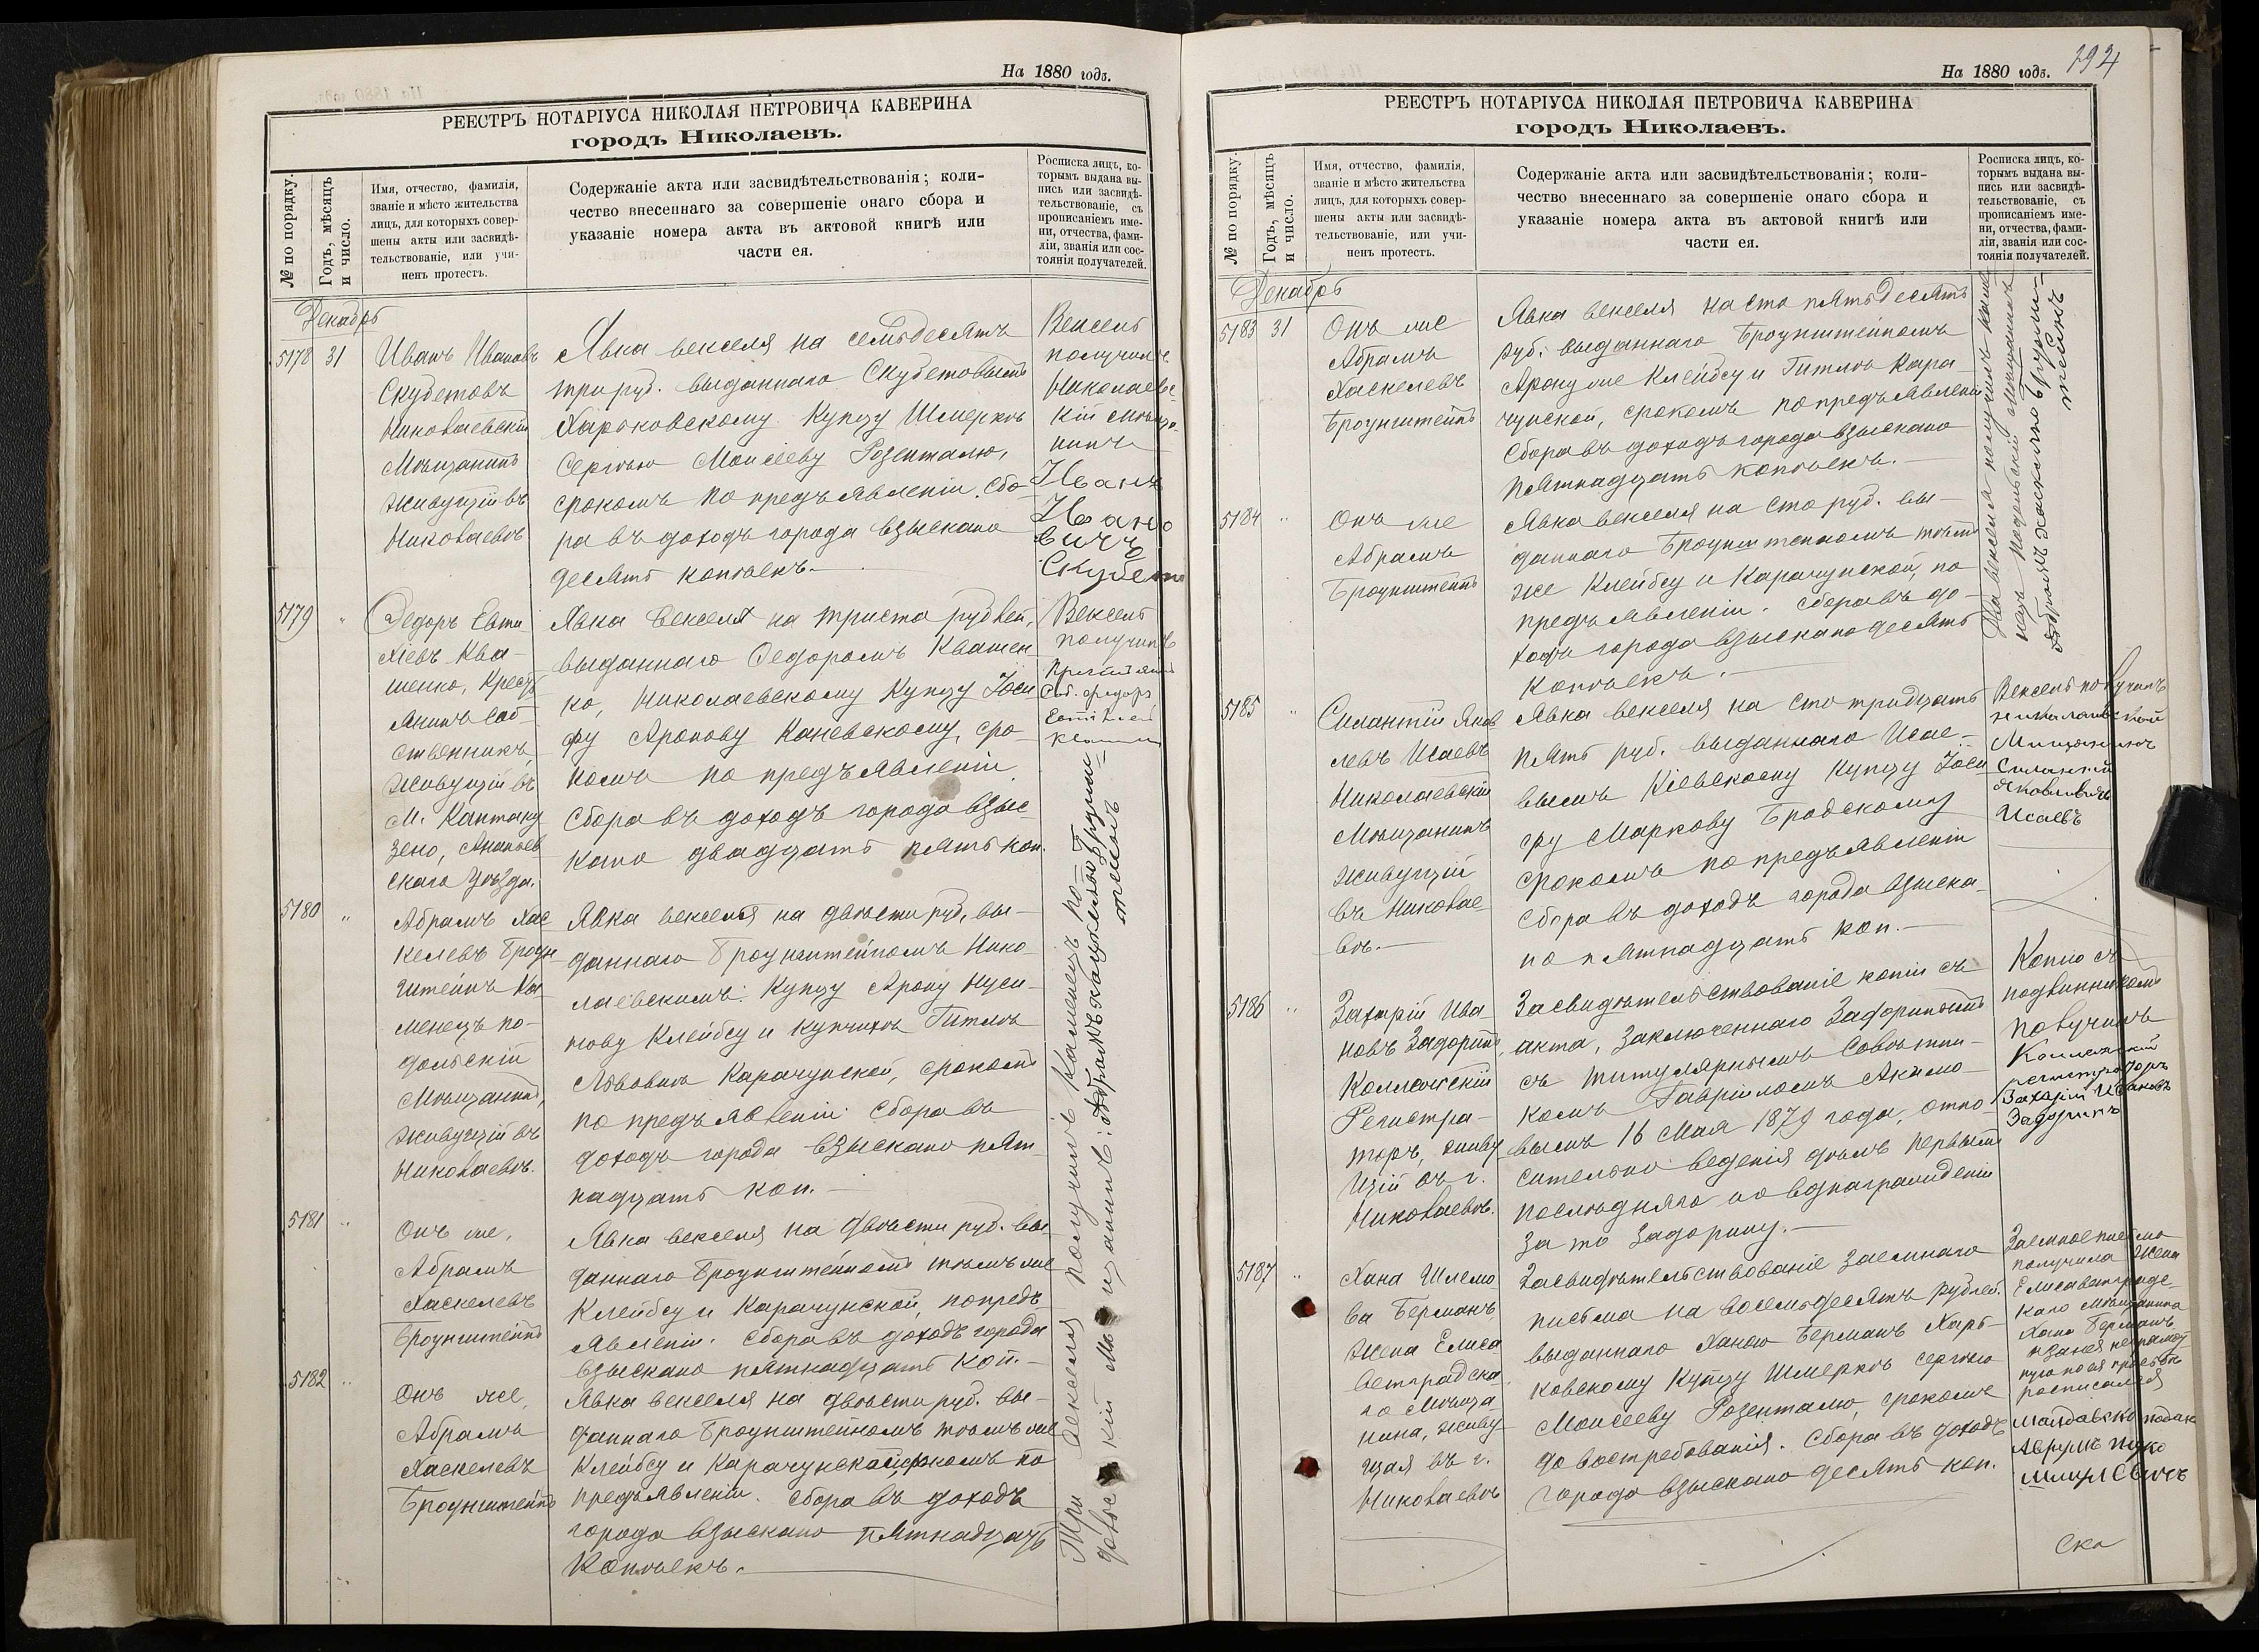 На 1880 годъ.
РЕЕСТРЪ НОТАРІУСА НИКОЛАЯ ПЕТРОВИЧА КАВЕРИНА
городъ Николаевъ.
№ по порядку.
Годъ, мѣсяцъ
и число.
Имя, отчество, фамилія,
званіе и мѣсто жительства
лицъ, для которыхъ совер-
шены акты или засвидѣ-
тельствованіе, или учи-
ненъ протестъ.
Содержаніе акта или засвидѣтельствованія; коли-
чество внесеннаго за совершеніе онаго сбора и
указаніе номера акта въ актовой книгѣ или
части ея.
Росписка лицъ, ко-
торымъ выдана вы-
пись или засвидѣ-
тельствованіе, съ
прописаніемъ име-
ни, отчества, фами-
ліи, званія или сос-
тоянія получателей.
Декабрь
5178 31
Иванъ Ивановъ
Скубетовъ
Николаевскій
Мѣщанинъ
живущій въ
Николаевѣ
Явка векселя на семьдесятъ
три руб. выданнаго Скубетовымъ
Харьковскому Купцу Шмеркѣ
Сергѣю Моисееву Розенталю,
срокомъ по предъявленіи. Сбо-
ра въ доходъ города взыскано
десять копѣекъ.
Вексель
получилъ
Николаевс-
кій Мѣща-
нинъ
Иванъ
Ивано
вичъ
5179 "
Федоръ Евти
хіевъ Ква-
шенко, Кресть
янинъ соб-
ственникъ,
живущій въ
М. Кантаку
зено, Ананьев
скаго уѣзда.
Явка векселя на триста рублей,
выданнаго Федоромъ Квашен
ко, Николаевскому Купцу Іоси
фу Аронову Каневскому, сро-
комъ по предъявленіи.
Сбора въ доходъ города взыс-
кано двадцать пять коп.
Вексель
получилъ
5180 "
Абрамъ Хас
келевъ Броун
штейнъ Ка-
менецъ по-
дольскій
Мѣщанинъ,
живущій въ
Николаевѣ.
Явка векселя на двѣсти руб., вы-
даннаго Броунштейномъ Нико-
лаевскимъ Купцу Арону Нуси-
мову Клейбсу и купчихѣ Гитлѣ
Львовнѣ Карачунской, срокомъ
по предъявленіи. Сбора въ
доходъ города взыскано пят-
надцать коп.
5181 "
Онъ же,
Абрамъ
Хаскелевъ
Броунштейнъ
Явка векселя на двѣсти руб. вы-
даннаго Броунштейномъ тѣмъ же
Клейбсу и Карачунской, по предъ-
явленіи. Сбора въ доходъ города
взыскано пятнадцать коп.
5182 "
Онъ же,
Абрамъ
Хаскелевъ
Броунштейнъ
Явка векселя на двѣсти руб. вы-
даннаго Броунштейномъ тѣмъ же
Клейбсу и Карачунской, срокомъ по
предъявленіи. Сбора въ доходъ
города взыскано пятнадцать
копѣекъ.
Три векселя получилъ Каменецъ по-
доль кій Мѣщанинъ: Абрамъ Хацкелевъ Брунш-
тейнъ
На 1880 годъ.
294
РЕЕСТРЪ НОТАРІУСА НИКОЛАЯ ПЕТРОВИЧА КАВЕРИНА
городъ Николаевъ.
№ по порядку.
Годъ, мѣсяцъ
и число.
Имя, отчество, фамилія,
званіе и мѣсто жительства
лицъ, для которыхъ совер-
шены акты или засвидѣ-
тельствованіе, или учи-
ненъ протестъ.
Содержаніе акта или засвидѣтельствованія; коли-
чество внесеннаго за совершеніе онаго сбора и
указаніе номера акта въ актовой книгѣ или
части ея.
Росписка лицъ, ко-
торымъ выдана вы-
пись или засвидѣ-
тельствованіе, съ
прописаніемъ име-
ни, отчества, фами-
ліи, званія или сос-
тоянія получателей.
Декабрь
5183 31
Онъ же
Абрамъ
Хаскелевъ
Броунштейнъ
Явка векселя на сто пятьдесятъ
руб. выданнаго Броунштейномъ
Арону же Клейбсу и Гитлѣ Кара-
чунской, срокомъ по предъявленіи
Сбора въ доходъ города взыскано
пятнадцать копѣекъ.
5184 "
Онъ же
Абрамъ
Броунштейнъ
Явка векселя на сто руб. вы-
даннаго Броунштейномъ тѣмъ
же Клейбсу и Карачунской, по
предъявленіи. Сбора въ до-
ходъ города взыскано десять
копѣекъ.
Два векселя получилъ Каме
нецъ Подольскій Мѣщанинъ
Абрамъ Хаскелевъ Брунш-
тейнъ
5185 "
Силантій Яков
левъ Исаевъ
Николаевскій
Мѣщанинъ
живущій
въ Николае-
вѣ.
Явка векселя на сто тридцать
пять руб. выданнаго Исае-
вымъ Кіевскому Купцу Іоси
фу Маркову Бродскому
срокомъ по предъявленіи
Сбора въ доходъ города взыска-
но пятнадцать коп.
Вексель получилъ
Мищанинъ
Силантій
Яковлевичъ
Исаевъ
5186 "
Захарій Ива
новъ Задоринъ,
Коллежскій
Регистра-
торъ, живу
щій въ г.
Николаевѣ.
Засвидѣтельствованіе копіи съ
акта, заключеннаго Задоринымъ
съ титулярнымъ Совѣтни-
комъ Гавріиломъ Акимо-
вымъ 16 Мая 1879 года, отно-
сительно веденія дѣлъ первымъ
послѣдняго и о вознагражденіи
за то Задорину.
Копію съ
подлинникомъ
получилъ
Коллежскій
регистраторъ
Захарій Ивановъ
Задоринъ
5187 "
Хана Шлемо
ва Берманъ,
Жена Елиса
ветградска
го Мѣща
нина, живу-
щая въ г.
Николаевѣ
Засвидѣтельствованіе заемнаго
письма на восемьдесятъ рублей.
выданнаго Ханою Берманъ Харь-
ковскому Купцу Шмеркѣ Сергѣю
Моисееву Розенталю, срокомъ
до востребованія. Сбора въ доходъ
города взыскано десять коп.
Заемное письмо
получила Жена
Елисаветградс-
каго Мѣщанина
Хана Берманъ,
а за нея неграмот
ную по ея просьбѣ
росписался
Ска